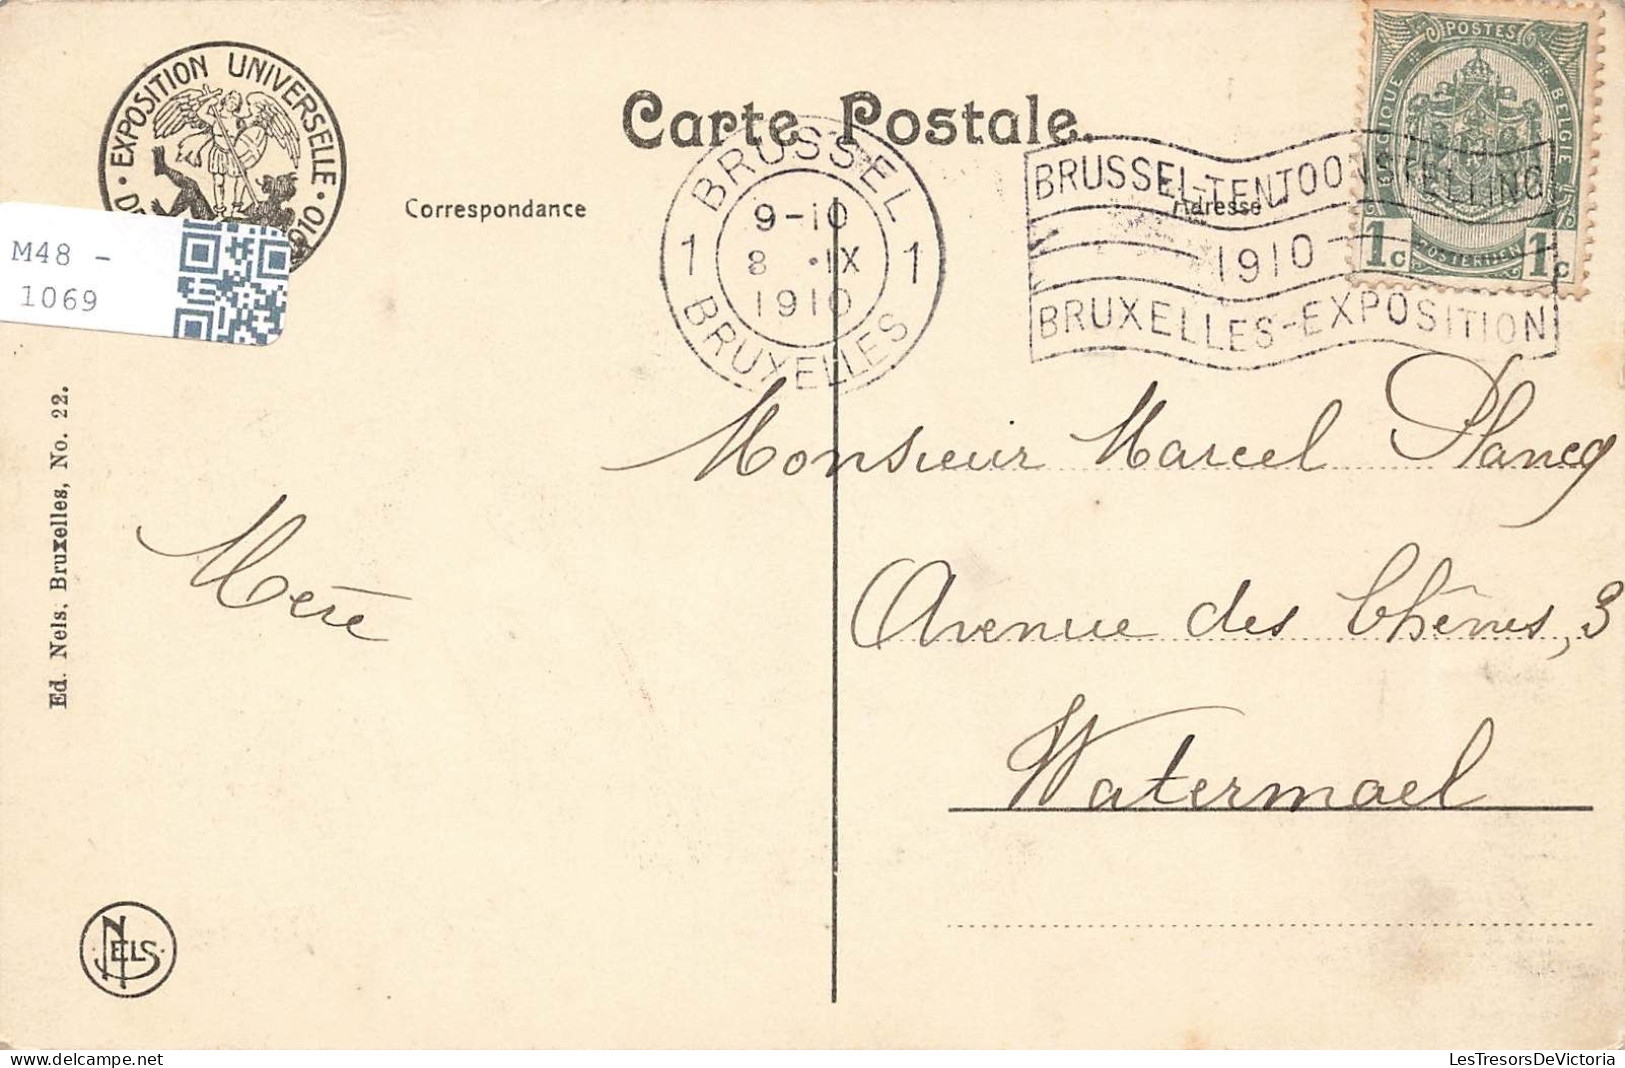 · EXPOSITION UNIVERSELLE ·
1910
M48 -
1069
Carte Postale.
Correspondance
Adresse
BRUSSEL
9-10
1 8 ·IX 1
1910
BRUXELLES
BRUSSEL-TENTOONSTELLING
1910
BRUXELLES-EXPOSITION
POSTES
BELGIQUE
BELGIË
POSTERIJEN
1c 1c
Monsieur Marcel Plancq
Avenue des Chênes, 3
Watermael
Mère
Ed. Nels, Bruxelles, No. 22.
NELS
LesTresorsDeVictoria